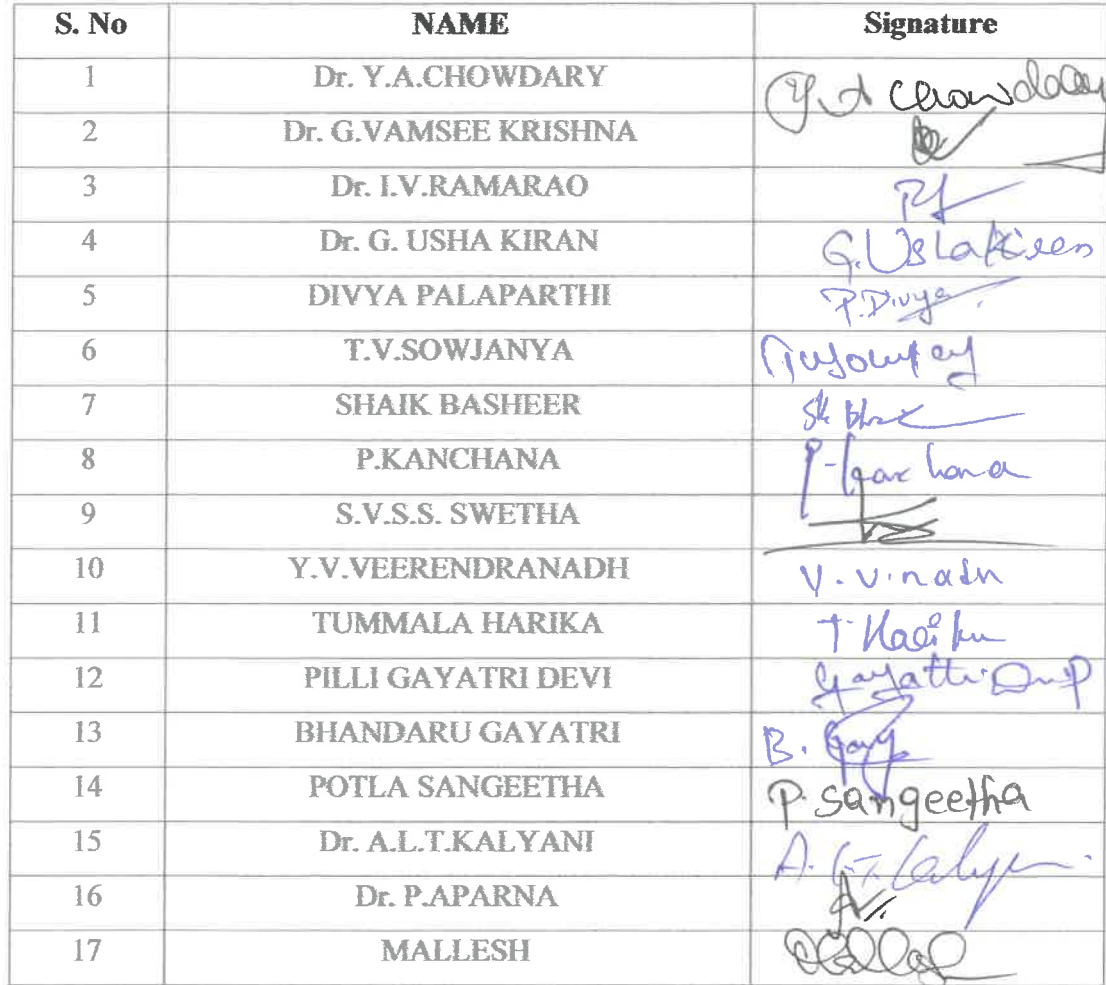 S. No NAME Signature
1 Dr. Y.A.CHOWDARY Y. A Chowdary
2 Dr. G.VAMSEE KRISHNA
3 Dr. I.V.RAMARAO
4 Dr. G. USHA KIRAN G. Usha Kiren
5 DIVYA PALAPARTHI P. Divya
6 T.V.SOWJANYA
7 SHAIK BASHEER Sk
8 P.KANCHANA P-Kanchana
9 S.V.S.S. SWETHA
10 Y.V.VEERENDRANADH Y. V. nadh
11 TUMMALA HARIKA T. Harika
12 PILLI GAYATRI DEVI Gayattri Devi P
13 BHANDARU GAYATRI B. Gay
14 POTLA SANGEETHA P. Sangeetha
15 Dr. A.L.T.KALYANI A. L.T. Kalyani
16 Dr. P.APARNA
17 MALLESH